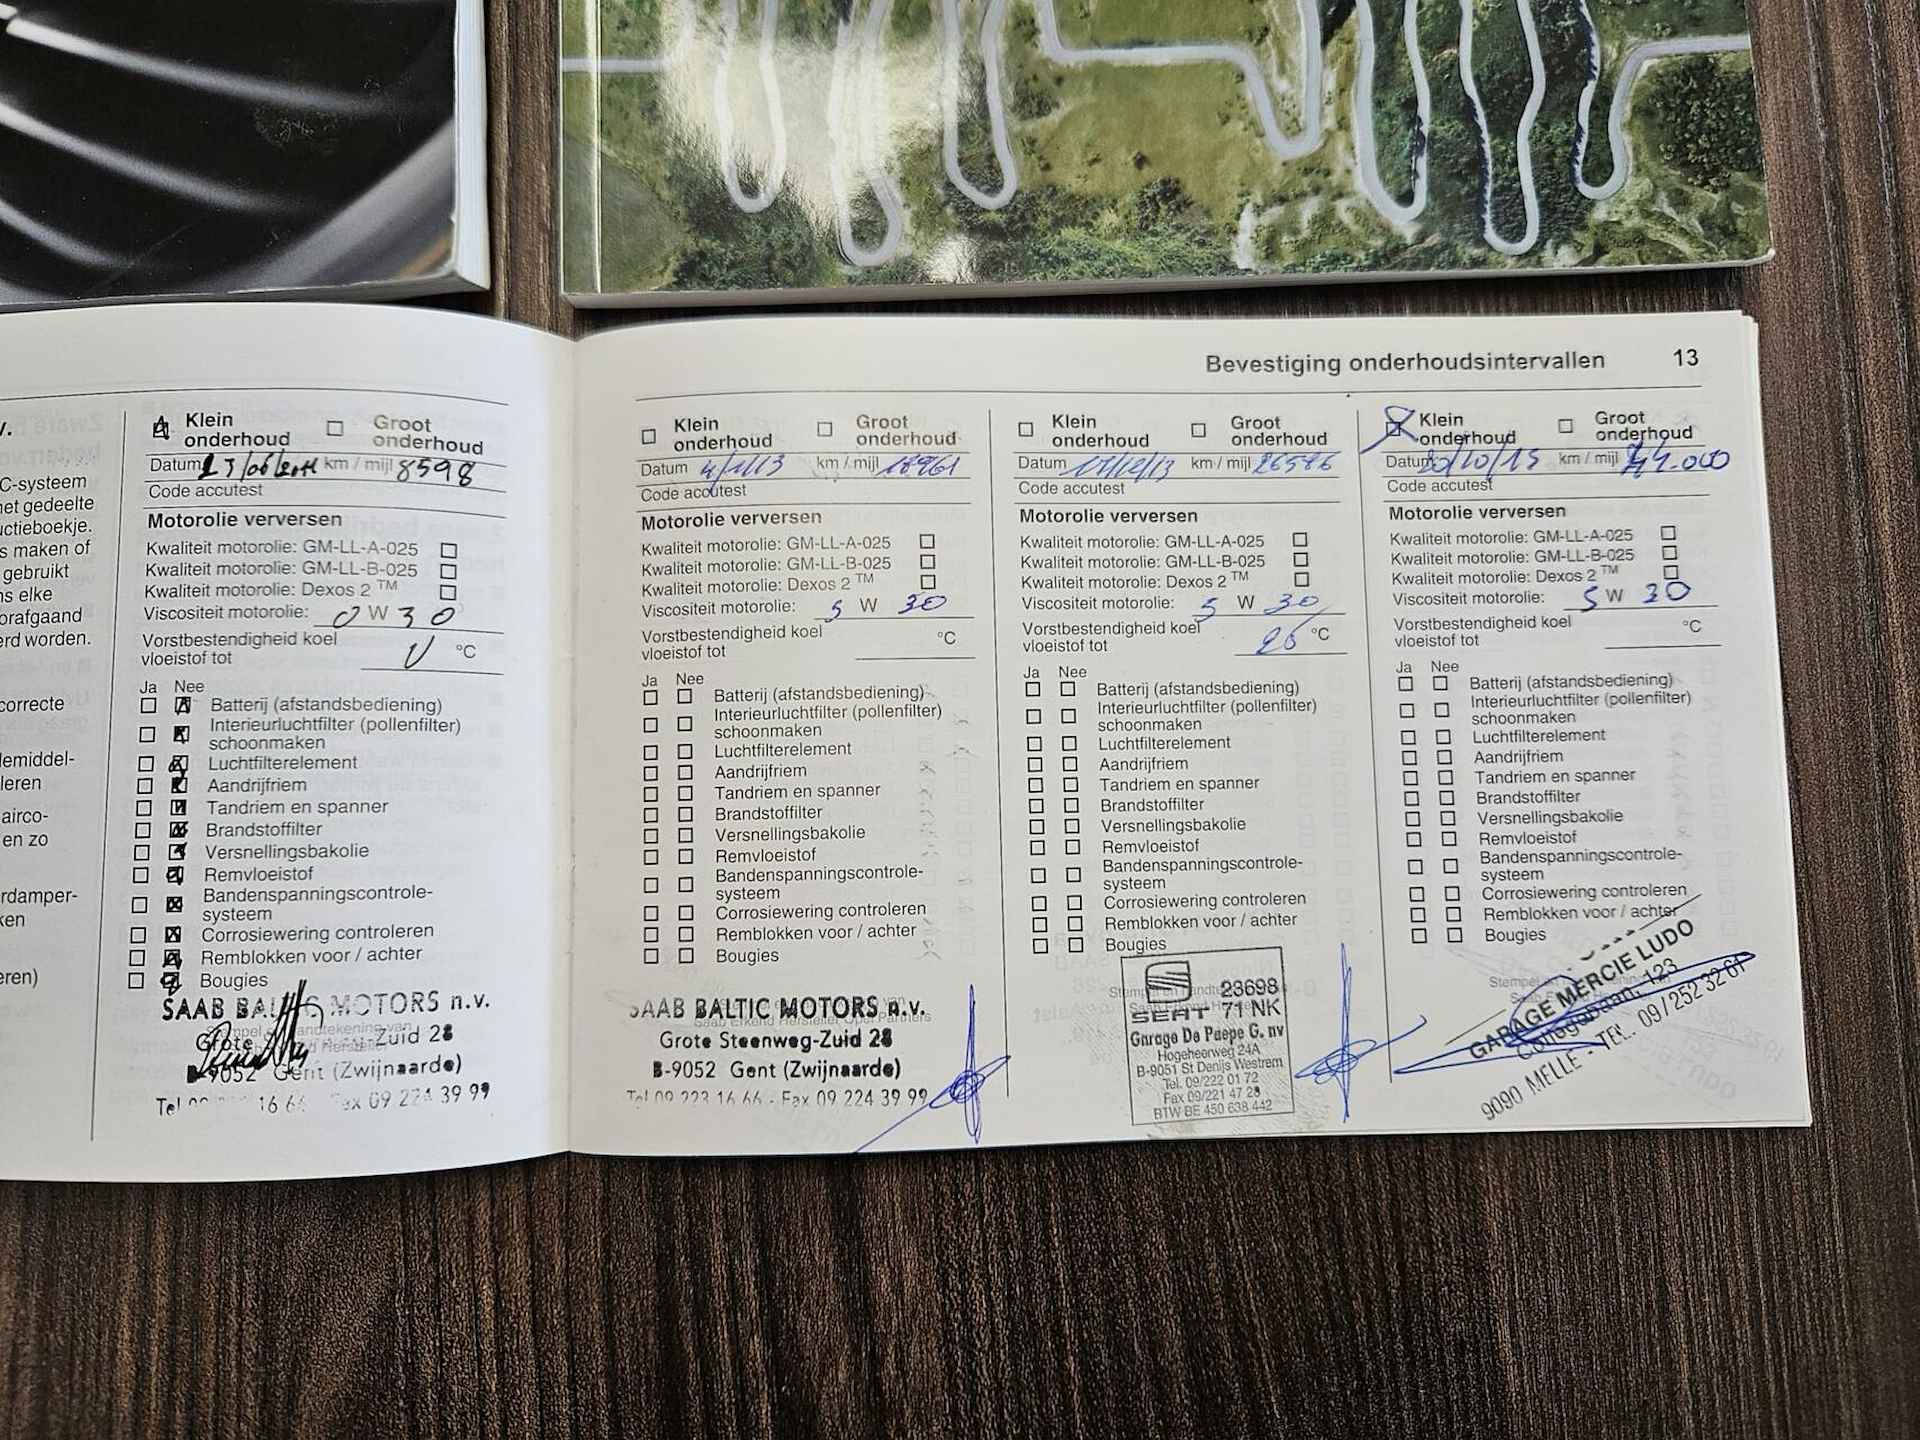 Bevestiging onderhoudsintervallen 13
v.
C-systeem
het gedeelte
uctieboekje.
s maken of
gebruikt
ns elke
orafgaand
erd worden.
correcte
demiddel-
leren
airco-
en zo
rdamper-
ken
eren)
Klein onderhoud Groot onderhoud
Datum km / mijl 8598
Code accutest
Motorolie verversen
Kwaliteit motorolie: GM-LL-A-025
Kwaliteit motorolie: GM-LL-B-025
Kwaliteit motorolie: Dexos 2 TM
Viscositeit motorolie: 0 W 30
Vorstbestendigheid koel
vloeistof tot °C
Ja Nee
Batterij (afstandsbediening)
Interieurluchtfilter (pollenfilter)
schoonmaken
Luchtfilterelement
Aandrijfriem
Tandriem en spanner
Brandstoffilter
Versnellingsbakolie
Remvloeistof
Bandenspanningscontrole-
systeem
Corrosiewering controleren
Remblokken voor / achter
Bougies
SAAB BALTIC MOTORS n.v.
Grote Zuid 28
B-9052 Gent (Zwijnaarde)
Tel 16 66 Fax 09 224 39 99
Klein onderhoud Groot onderhoud
Datum 4/1/13 km / mijl 18961
Code accutest
Motorolie verversen
Kwaliteit motorolie: GM-LL-A-025
Kwaliteit motorolie: GM-LL-B-025
Kwaliteit motorolie: Dexos 2 TM
Viscositeit motorolie: 5 W 30
Vorstbestendigheid koel
vloeistof tot °C
Ja Nee
Batterij (afstandsbediening)
Interieurluchtfilter (pollenfilter)
schoonmaken
Luchtfilterelement
Aandrijfriem
Tandriem en spanner
Brandstoffilter
Versnellingsbakolie
Remvloeistof
Bandenspanningscontrole-
systeem
Corrosiewering controleren
Remblokken voor / achter
Bougies
SAAB BALTIC MOTORS n.v.
Saab Erkend Hersteller Opel Partners
Grote Steenweg-Zuid 28
B-9052 Gent (Zwijnaarde)
Tel 09 223 16 66 - Fax 09 224 39 99
Klein onderhoud Groot onderhoud
Datum 17/12/13 km / mijl 26586
Code accutest
Motorolie verversen
Kwaliteit motorolie: GM-LL-A-025
Kwaliteit motorolie: GM-LL-B-025
Kwaliteit motorolie: Dexos 2 TM
Viscositeit motorolie: 5 W 30
Vorstbestendigheid koel
vloeistof tot 25 °C
Ja Nee
Batterij (afstandsbediening)
Interieurluchtfilter (pollenfilter)
schoonmaken
Luchtfilterelement
Aandrijfriem
Tandriem en spanner
Brandstoffilter
Versnellingsbakolie
Remvloeistof
Bandenspanningscontrole-
systeem
Corrosiewering controleren
Remblokken voor / achter
Bougies
23698
SEAT 71 NK
Garage De Paepe G. nv
Hogeheerweg 24A
B-9051 St Denijs Westrem
Tel. 09/222 01 72
Fax 09/221 47 28
BTW BE 450 638 442
Klein onderhoud Groot onderhoud
Datum 20/10/15 km / mijl 44.000
Code accutest
Motorolie verversen
Kwaliteit motorolie: GM-LL-A-025
Kwaliteit motorolie: GM-LL-B-025
Kwaliteit motorolie: Dexos 2 TM
Viscositeit motorolie: 5 W 30
Vorstbestendigheid koel
vloeistof tot °C
Ja Nee
Batterij (afstandsbediening)
Interieurluchtfilter (pollenfilter)
schoonmaken
Luchtfilterelement
Aandrijfriem
Tandriem en spanner
Brandstoffilter
Versnellingsbakolie
Remvloeistof
Bandenspanningscontrole-
systeem
Corrosiewering controleren
Remblokken voor / achter
Bougies
GARAGE MERCIE LUDO
123
9090 MELLE - TEL. 09/252 32 61